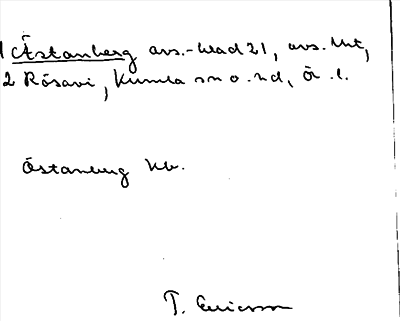 1 Åstanberg avs.-blad 21, avs. Mt,
2 Rösavi, Kumla sn o. hd, Ö. l.
Östanberg Hb.
T. Ericsson